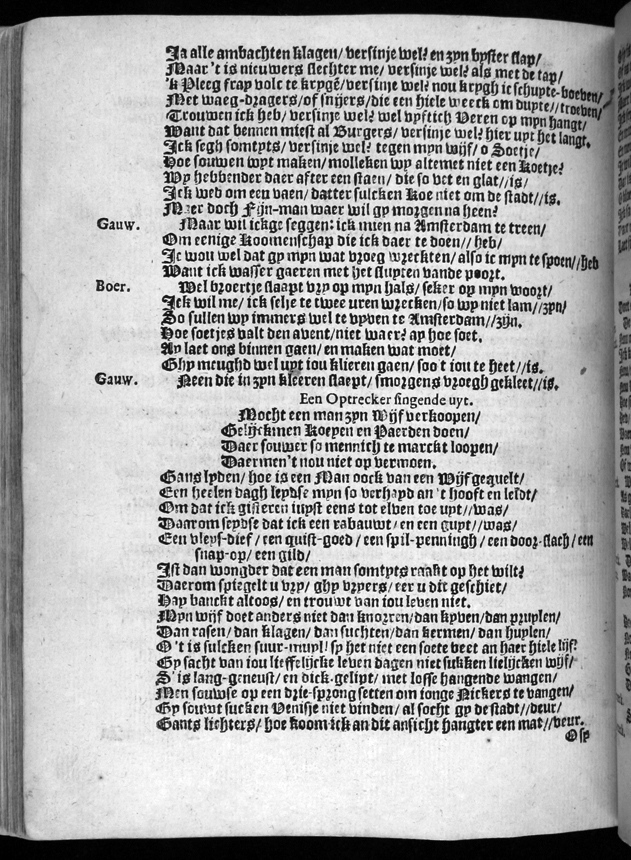 Ja alle ambachten klagen/ versinje wel? en zyn byster slap/
Maar 't is nieuwers slechter me/ versinje wel? als met de tap/
'k Pleeg fray volc te krygē/ versinje wel? nou krygh ic schupte-boeven/
Met waeg-dragers/ of snijers/ die een hiele weeck om dupte// troeven/
Trouwen ick heb/ versinje wel? wel vystich Veren op myn hangt/
Want dat bennen miest al Burgers/ versinje wel? hier uyt het langt.
Ick segh somtyts/ versinje wel? tegen myn wijf/ o Soetje/
Hoe souwen wyt maken/ molleken wy altemet niet een Koetje?
Wy hebbender daer after een staen/ die so vet en glat//is/
Ick wed om een vaen/ datter sulcken Koe niet om de stadt//is.
Maer doch Fijn-man waer wil gy morgen na heen?
Gauw. Maar wil ickge seggen: ick mien na Amsterdam te treen/
Om eenige Koomenschap die ick daer te doen// heb/
Ic wou wel dat gy myn wat vroeg wreckten/ also ic myn te spoen//heb
Want ick wasser gaeren met het sluyten vande poort.
Boer. Wel broertje slaapt vry op myn hals/ seker op myn woort/
Ick wil me/ ick selje te twee uren wrecken/ so wy niet lam//zyn/
So sullen wy immers wel te vyven te Amsterdam//zijn.
Hoe soetjes valt den avent/ niet waer? ay hoe soet.
Ay laet ons binnen gaen/ en maken wat moet/
Ghy meughd wel uyt jou klieren gaen/ soo't jou te heet//is.
Gauw. Neen die in zyn kleeren slaept/ smorgens vroegh gekleet//is.
Een Optrecker singende uyt.
Mocht een man zyn Wijf verkoopen/
Gelijckmen Koeyen en Paerden doen/
Daer souwer so mennich te marckt loopen/
Daermen't nou niet op vermoen.
Gans lyden/ hoe is een Man oock van een Wijf gequelt/
Een heelen dagh leydse myn so verhayd an 't hooft en leldt/
Om dat ick gisteren iuyst eens tot elven toe uyt//was/
Daarom seydse dat ick een rabauwt/ en een guyt//was/
Een vleys-dief/ een quist-goed/ een spil-penningh/ een door-slach/ een
snap-op/ een gild/
Ist dan wongder dat een man somtyts raakt op het wilt?
Daerom spiegelt u vry/ ghy vryers/ eer u dit geschiet/
Hay banckt altoos/ en trouwt van jou leven niet.
Myn wijf doet anders niet dan knorren/ dan kyven/ dan pruylen/
Dan rasen/ dan klagen/ dan suchten/ dan kermen/ dan huylen/
O 't is sulcken suur-muyl! sy het niet een soete veet an haer hiele lijf?
Gy sacht van jou lieffelijcke leven dagen niet sukken lielijcken wijf/
S' is lang-geneust/ en dick-gelipt/ met losse hangende wangen/
Men souwse op een drie-sprong setten om jonge Nickers te vangen/
Gy souwt sucken Venisje niet vinden/ al socht gy de stadt//deur/
Gants lichters/ hoe koom ick an dit ansicht hangter een mat//veur.
Ose